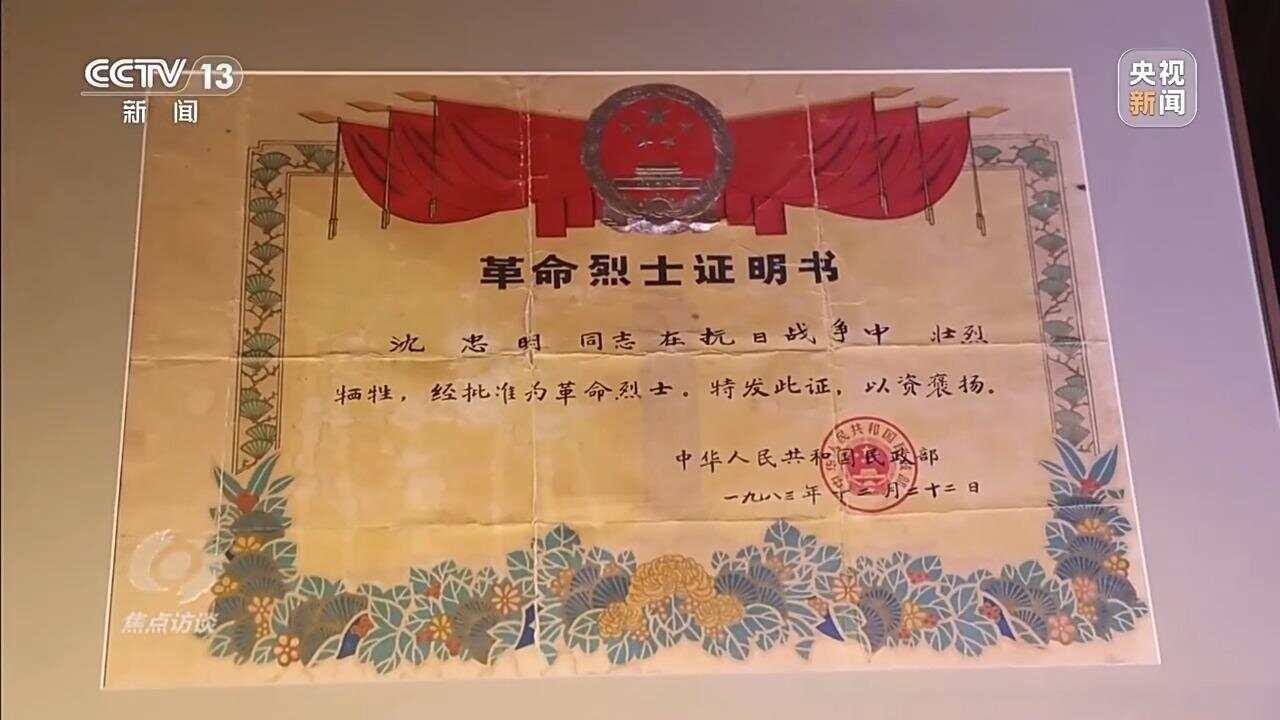 CCTV 13
新闻
央视
新闻
革命烈士证明书
沈忠明同志在抗日战争中壮烈
牺牲，经批准为革命烈士。特发此证，以资褒扬。
中华人民共和国民政部
一九八三年十二月二十二日
焦点访谈